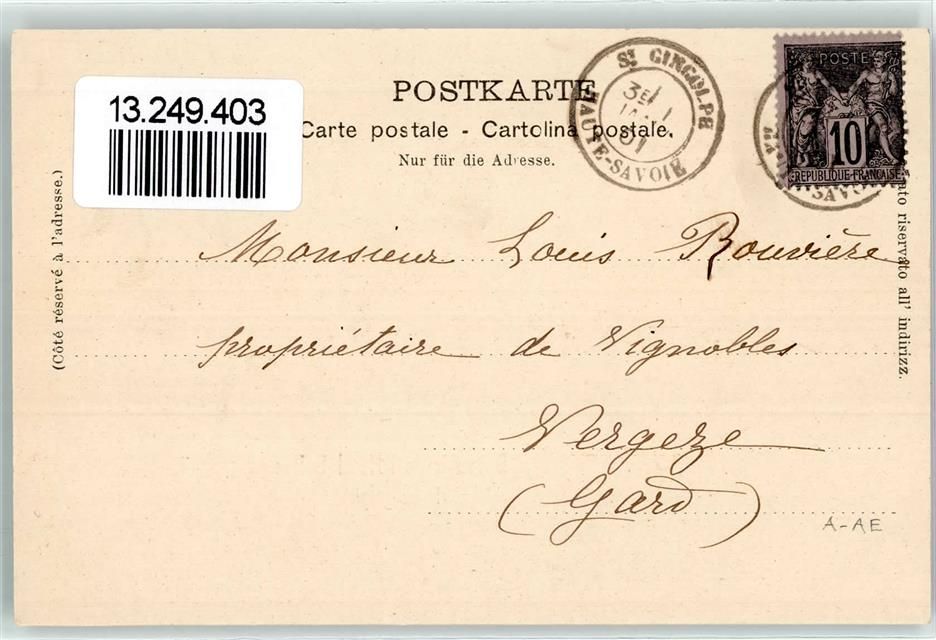 13.249.403
POSTKARTE
Carte postale - Cartolina postale.
Nur für die Adresse.
ST GINGOLPH
3E
01
HAUTE-SAVOIE
POSTE
10
REPUBLIQUE FRANÇAISE
SAVO
(Côté réservé à l'adresse.)
riservato all' indirizz.
Monsieur Louis Rouvière
propriétaire de Vignobles
Vergeze
(Gard)
A-AE